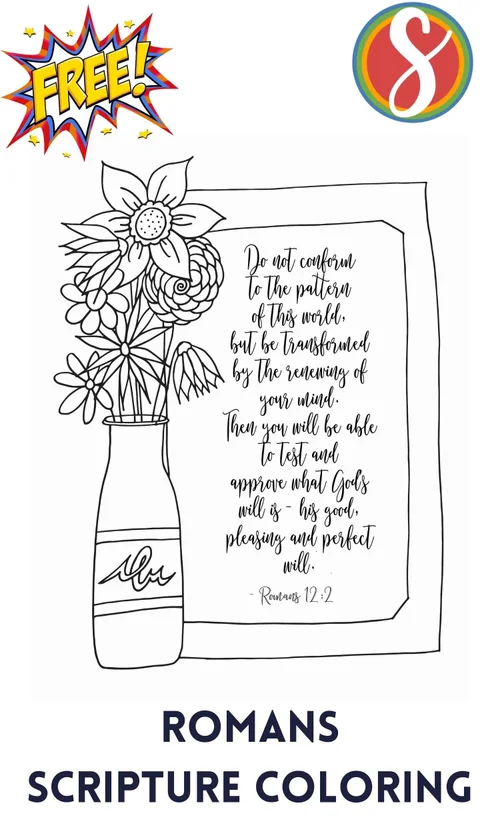 FREE!
Do not conform
to the pattern
of this world,
but be transformed
by the renewing of
your mind.
Then you will be able
to test and
approve what God's
will is - his good,
pleasing and perfect
will.
- Romans 12:2
ROMANS
SCRIPTURE COLORING